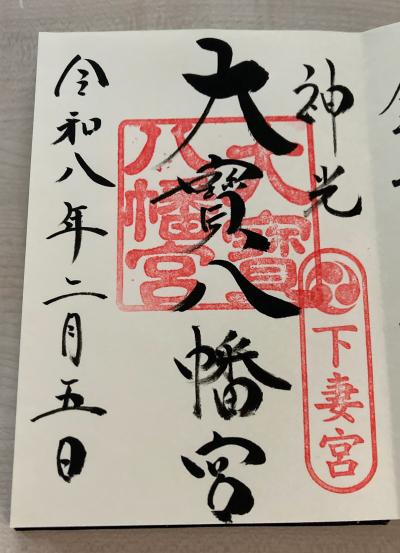 神光
大寳八幡宮
令和八年二月五日
大寳
八幡宮
下妻宮